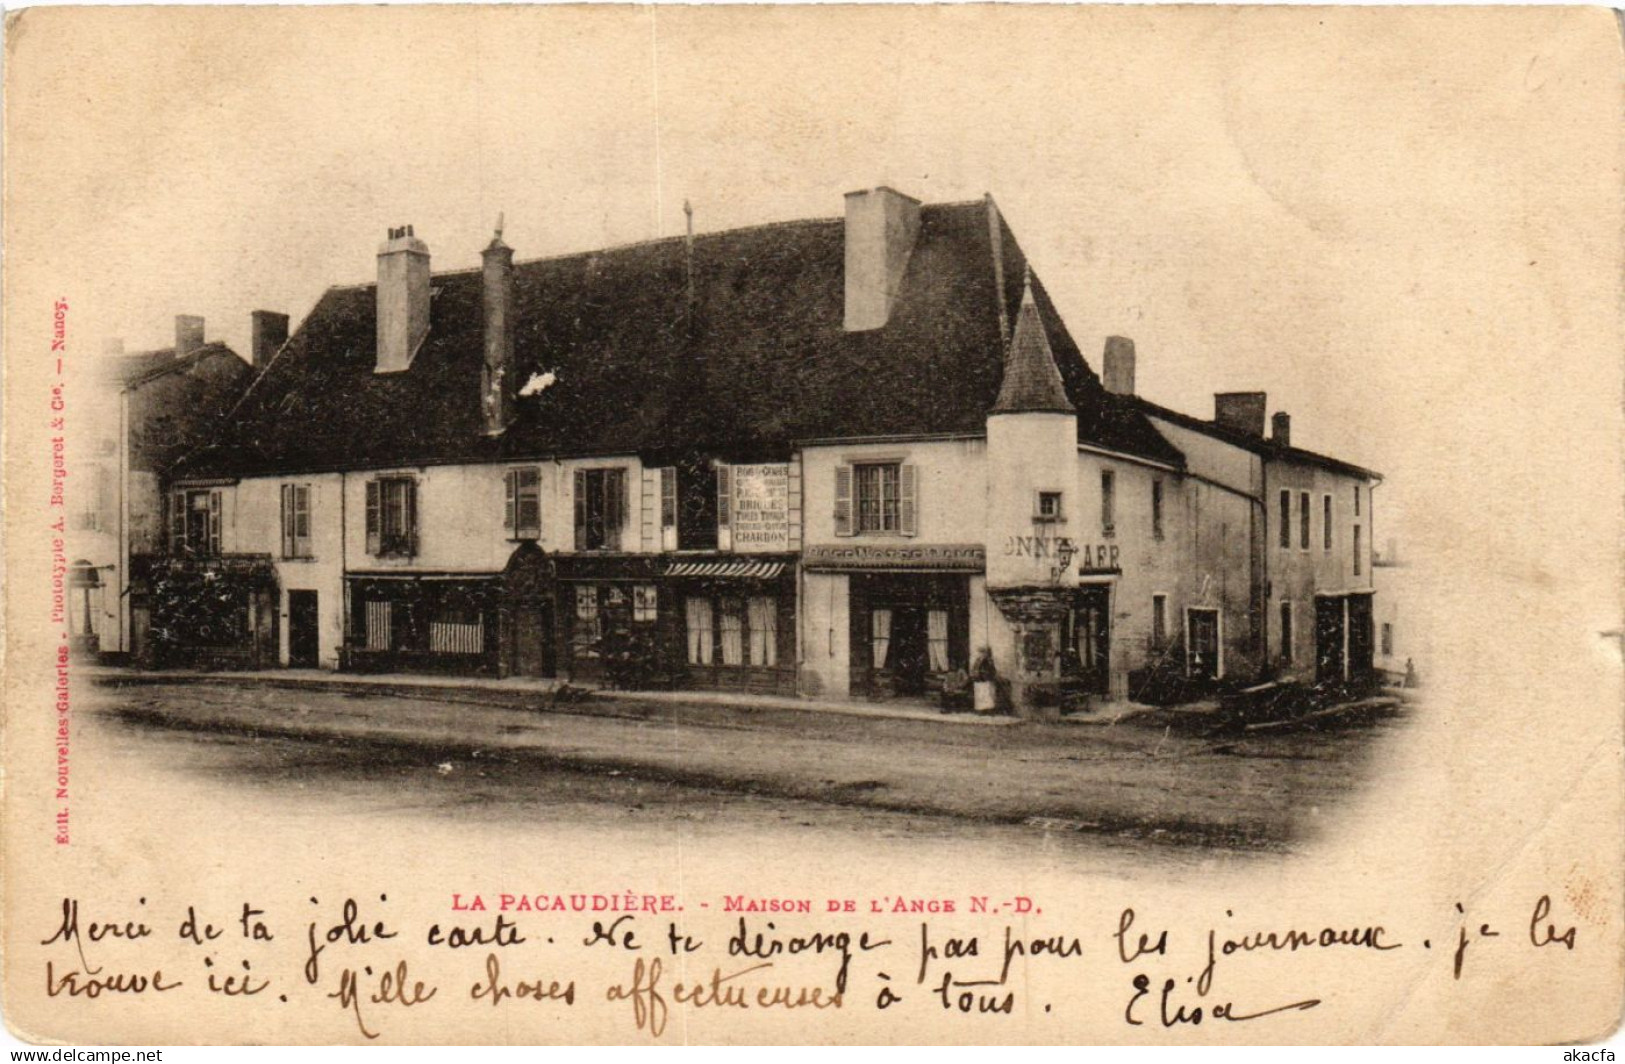 BRIQUES
CHARBON
CAFÉ NOTRE-DAME
ONNE
Édit. Nouvelles Galeries - Phototypie A. Bergeret & Cie. — Nancy.
LA PACAUDIÈRE. - MAISON DE L'ANGE N.-D.
Merci de ta jolie carte. Ne te dérange pas pour les journaux. je les
trouve ici. Mille choses affectueuses à tous. Elisa
akacfa